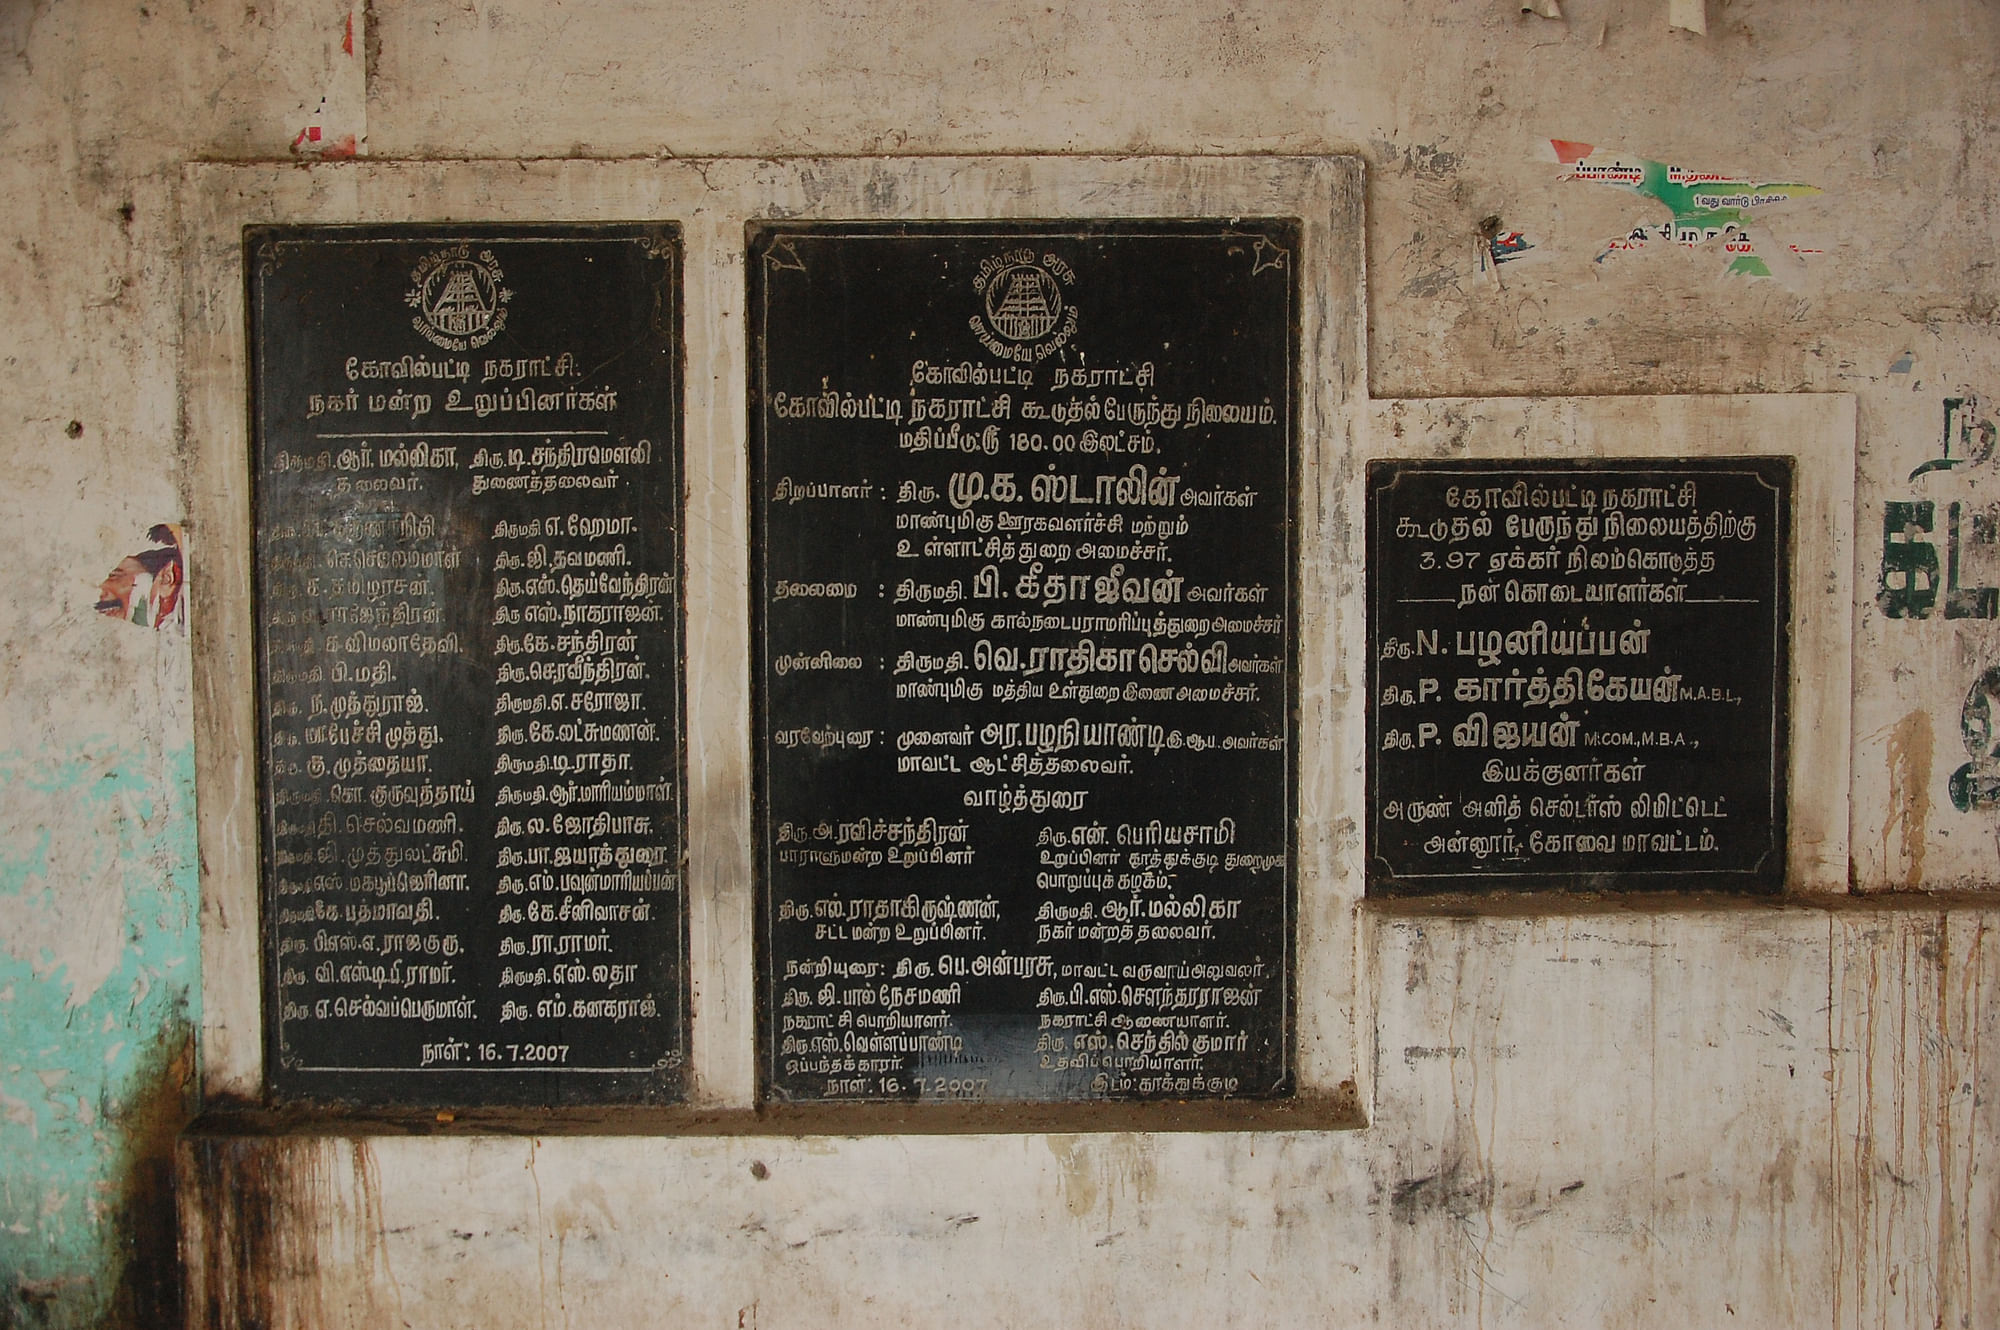 தமிழ்நாடு அரசு
வாய்மையே வெல்லும்
கோவில்பட்டி நகராட்சி
நகர் மன்ற உறுப்பினர்கள்
திருமதி.ஆர். மல்லிகா, திரு.டி.சந்திரமௌலி
தலைவர். துணைத்தலைவர்
திருமதி எ. ஹேமா.
திருமதி. செ.செல்லம்மாள் திரு.ஜி.தவமணி.
திரு.க.தமிழரசன். திரு.எஸ்.தெய்வேந்திரன்
ராஜேந்திரன். திரு எஸ்.நாகராஜன்.
க.விமலாதேவி. திரு.கே.சந்திரன்
திருமதி. பி.மதி. திரு.செ.ரவீந்திரன்.
திரு. ந.முத்துராஜ். திருமதி.எ.சரோஜா.
திரு. மா.பேச்சிமுத்து. திரு.கே.லட்சுமணன்.
திரு. கு.முத்தையா. திருமதி.டி.ராதா.
திருமதி.கொ.குருவுத்தாய் திருமதி.ஆர்.மாரியம்மாள்.
தி.செல்வமணி. திரு.ல.ஜோதிபாசு.
திருமதி.ஜி.முத்துலட்சுமி. திரு.பா.ஜயாத்துரை.
எஸ்.மகபூப்ஜெரினா. திரு.எம்.பவுன்மாரியப்பன்
திருமதி.கே.பத்மாவதி. திரு.கே.சீனிவாசன்.
திரு. பிஎஸ்.எ.ராஜகுரு. திரு.ரா.ராமர்.
திரு. வி.எஸ்.டி.பீ.ராமர். திருமதி.எஸ்.லதா
திரு.எ.செல்வப்பெருமாள். திரு. எம்.கனகராஜ்.
நாள்: 16.7.2007
தமிழ்நாடு அரசு
வாய்மையே வெல்லும்
கோவில்பட்டி நகராட்சி
கோவில்பட்டி நகராட்சி கூடுதல் பேருந்து நிலையம்.
மதிப்பீடு:ரூ 180.00 இலட்சம்.
திறப்பாளர் : திரு. மு.க. ஸ்டாலின் அவர்கள்
மாண்புமிகு ஊரகவளர்ச்சி மற்றும்
உள்ளாட்சித்துறை அமைச்சர்.
தலைமை : திருமதி. பி. கீதா ஜீவன் அவர்கள்
மாண்புமிகு கால்நடைபராமரிப்புத்துறை அமைச்சர்
முன்னிலை : திருமதி. வெ.ராதிகாசெல்வி அவர்கள்
மாண்புமிகு மத்திய உள்துறை இணை அமைச்சர்.
வரவேற்புரை : முனைவர் அர.பழநியாண்டி இ.ஆ.ப. அவர்கள்
மாவட்ட ஆட்சித்தலைவர்.
வாழ்த்துரை
திரு.அ.ரவிச்சந்திரன் திரு.என். பெரியசாமி
பாராளுமன்ற உறுப்பினர் உறுப்பினர் தூத்துக்குடி துறைமுக
பொறுப்புக் கழகம்.
திரு.எல்.ராதாகிருஷ்ணன், திருமதி. ஆர்.மல்லிகா
சட்டமன்ற உறுப்பினர். நகர்மன்றத் தலைவர்.
நன்றியுரை: திரு. பெ.அன்பரசு, மாவட்ட வருவாய் அலுவலர்.
திரு. ஜி.பால் நேசமணி திரு.பி.எஸ்.சௌந்தரராஜன்
நகராட்சி பொறியாளர். நகராட்சி ஆணையாளர்.
திரு.எஸ்.வெள்ளப்பாண்டி திரு. எஸ்.செந்தில்குமார்
ஒப்பந்தக்காரர். உதவிப்பொறியாளர்.
நாள்: 16.7.2007 இடம்:தூத்துக்குடி
கோவில்பட்டி நகராட்சி
கூடுதல் பேருந்து நிலையத்திற்கு
3.97 ஏக்கர் நிலம்கொடுத்த
நன்கொடையாளர்கள்
திரு.N. பழனியப்பன்
திரு.P. கார்த்திகேயன் M.A.B.L.,
திரு.P. விஜயன் M.COM.,M.B.A.,
இயக்குனர்கள்
அருண் அனித் செல்டர்ஸ் லிமிட்டெட்
அன்னூர், கோவை மாவட்டம்.
1வது வார்டு